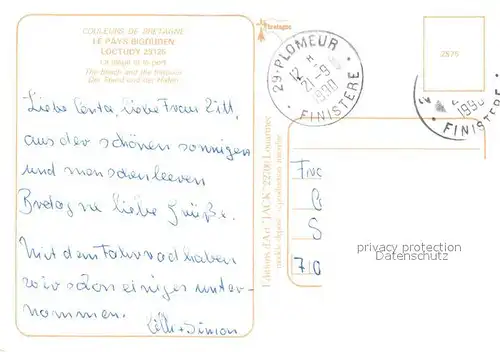 COULEURS DE BRETAGNE
LE PAYS BIGOUDEN
LOCTUDY 29125
La plage et le port
The Beach and the Harbour
Der Strand und der Hafen
Liebe Centa, liebe Frau Zill,
aus der schönen sonnigen
und menschenleeren
Bretagne liebe Grüße.
Mit dem Fahrrad haben
wir schon einiges unter-
nommen.
+ Simon
Bretagne
29·PLOMEUR
12 H
21-9
1990
FINISTÈRE
2875
1990
FINISTÈRE
Editions d'Art "JACK" 22700 Louannec
modèle déposé - reproduction interdite
710
privacy protection
Datenschutz